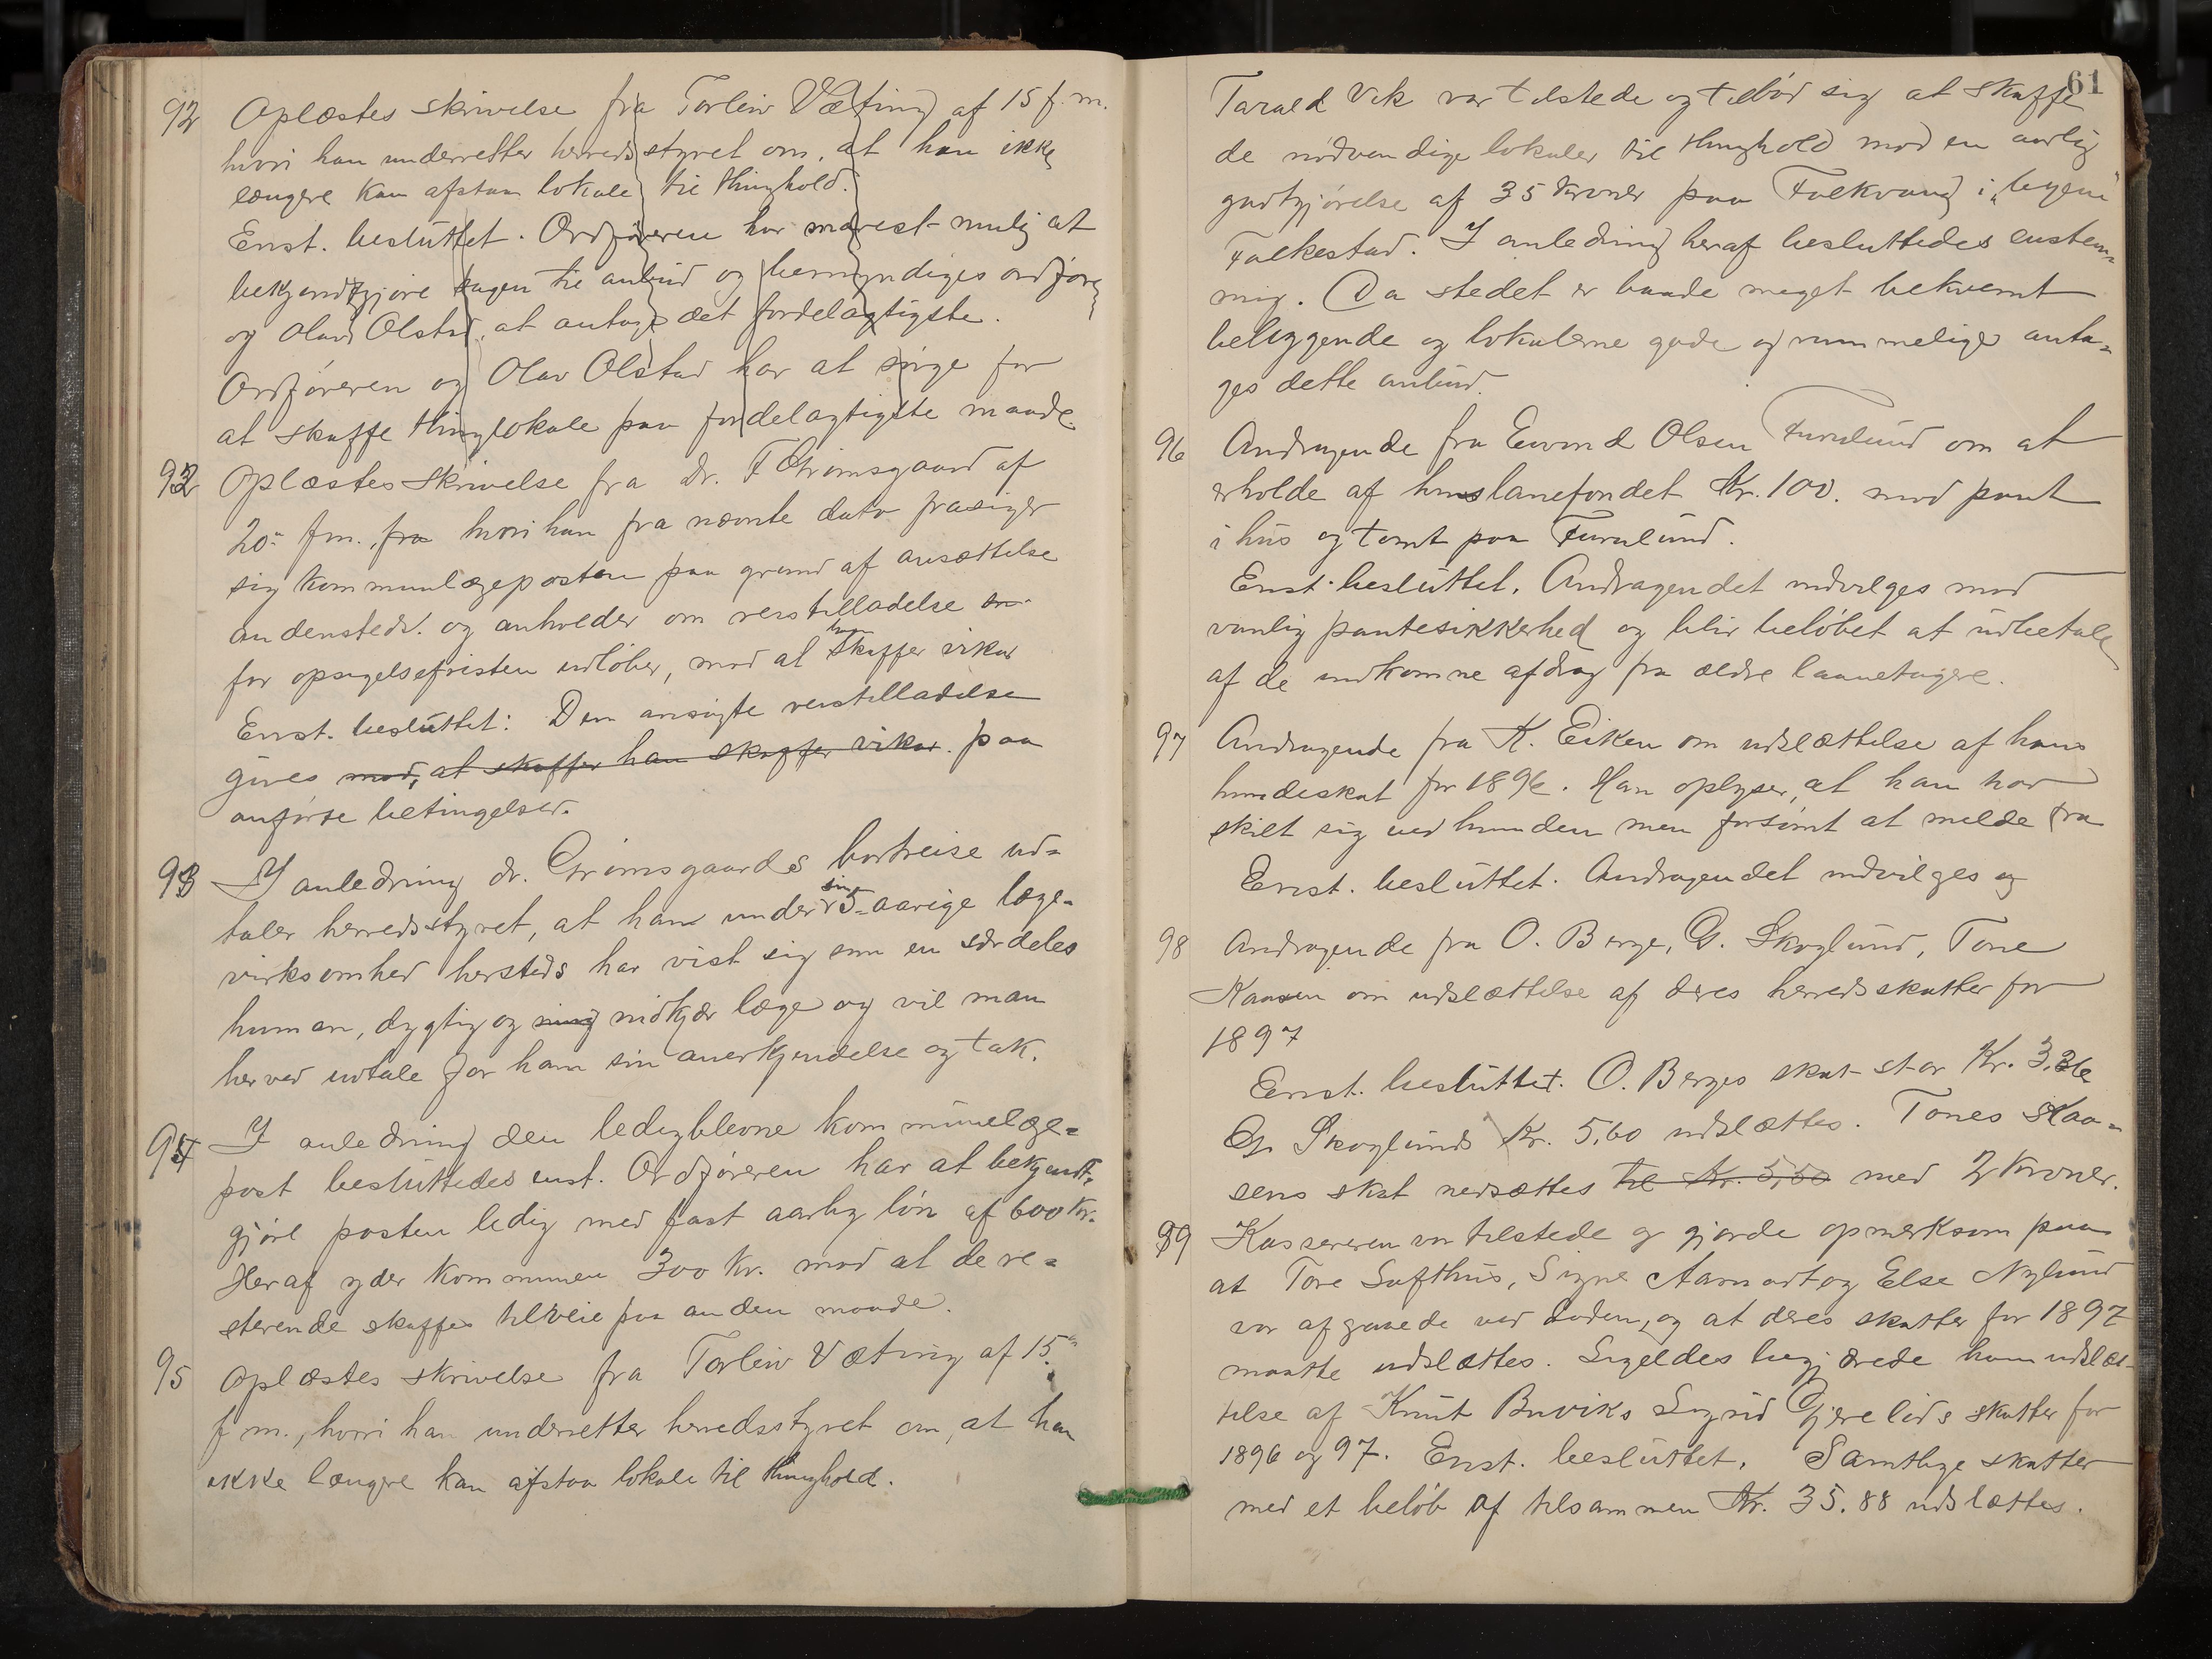 92 Oplæstes skrivelse fra Torleiv Væting af 15 f. m.
hvori han underretter herredsstyret om, at han ikke
længere kan afstaa lokale til thinghold.
Enst. besluttet. Ordføreren har snarest mulig at
bekjendtgjøre sagen til anbud og bemyndiges ordfører
og Olav Olstad, at antage det fordelagtigste.
Ordføreren og Olav Olstad har at sørge for
at skaffe thinglokale paa fordelagtigste maade.
92 Oplæstes skrivelse fra dr. F Grimsgaard af
20de fm. fra hvori han fra nævnte dato frasiger
sig kommunlægeposten paa grund af ansættelse
andensteds. og anholder om reisetilladelse
før opsigelsefristen udløber, mod at han skaffer vikar
Enst. besluttet: Den ansøgte reisetilladelse
gives mod, at skaffer han skaffer vikar. paa
anførte betingelser.
93 I anledning dr. Grimsgaards bortreise ud-
taler herredsstyret, at han under sin 5-aarige læge-
virksomhed hersteds har vist sig som en særdeles
human, dygtig og nidkjær læge og vil man
herved udtale for ham sin anerkjendelse og tak.
94 I anledning den ledigblevne kommunelæge-
post besluttedes enst. Ordføreren har at bekjendt-
gjøre posten ledig med fast aarlig løn af 600 kr.
Heraf yder kommunen 300 kr. mod at de re-
sterende skaffes tilveie paa anden maade.
95 Oplæstes skrivelse fra Torleiv Væting af 15de
f m., hvori han underretter herredsstyret om, at han
ikke længere kan afstaa lokale til thinghold.
61
Tarald Vik var tilstede og tilbød sig at skaffe
de nødvendige lokaler til thinghold mod en aarlig
godtgjørelse af 35 kroner paa Folkvang i "byen"
Folkestad. I anledning heraf besluttedes enstem-
mig. Da stedet er baade meget bekvemt
beliggende og lokalerne gode og rummelige anta-
ges dette anbud.
96 Andragende fra Eivind Olsen Furulund om at
erholde af huslanefondet Kr. 100. mod pant
i hus og tomt paa Furulund.
Enst. besluttet. Andragendet indvilges mod
vanlig pantesikkerhed og blir beløbet at udbetale
af de indkomne afdrag fra ældre laanetagere.
97 Andragende fra K. Eiken om udslættelse af hans
hundeskat for 1896. Han oplyser, at han har
skilt sig ved hunden men forsømt at melde fra
Enst. besluttet. Andragendet indvilges og
98 Andragende fra O. Berge, G. Skoglund, Tone
Kaasen om udslættelse af deres herredsskatter for
1897
Enst. besluttet. O. Berges skat stor Kr. 3,36
G. Skoglunds Kr. 5,60 udslættes. Tones Kaa-
sens skat nedsættes til Kr. 5,60 med 2 kroner.
99 Kassereren var tilstede og gjorde opmerksom paa
at Tore Lofthus, Signe Aarnodt og Else Nylund
var afgaaede ved døden, og at deres skatter for 1897
maatte udslættes. Ligeledes begjærede han udslæt-
telse af Knut Buviks Sigrid Gjerelids skatter for
1896 og 97. Enst. besluttet. Samtlige skatter
med et beløb af tilsammen Kr. 35.88 udslættes.